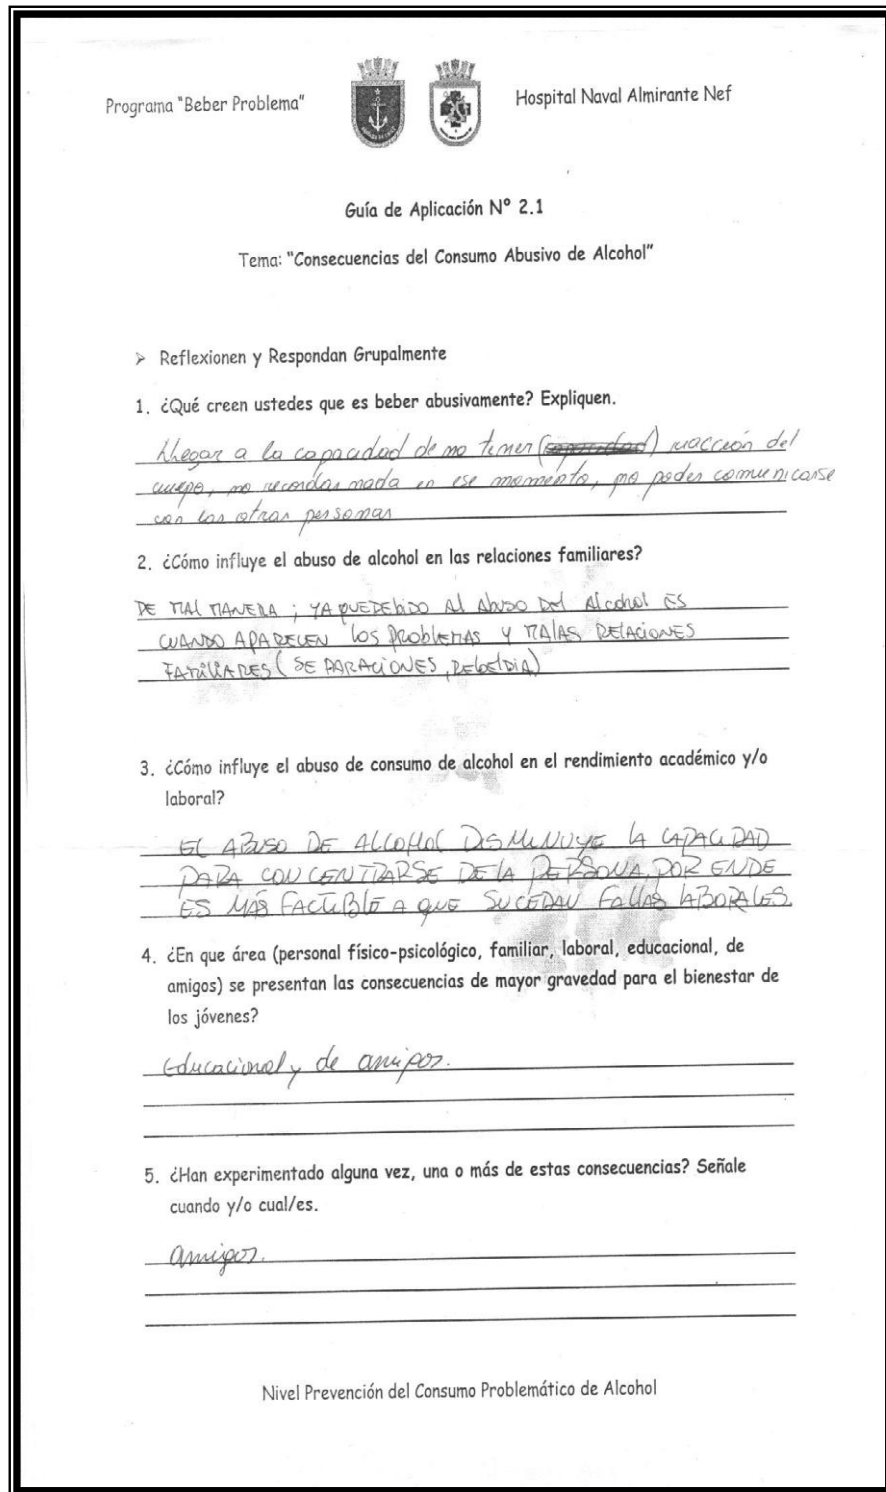 Programa "Beber Problema"
Hospital Naval Almirante Nef
Guía de Aplicación Nº 2.1
Tema: "Consecuencias del Consumo Abusivo de Alcohol"
➢ Reflexionen y Respondan Grupalmente
1. ¿Qué creen ustedes que es beber abusivamente? Expliquen.
Llegar a la capacidad de no tener (capacidad) reacción del
cuerpo, no recordar nada en ese momento, no poder comunicarse
con las otras personas
2. ¿Cómo influye el abuso de alcohol en las relaciones familiares?
DE MAL MANERA; YA QUE DEBIDO Al Abuso Del Alcohol ES
CUANDO APARECEN LOS PROBLEMAS Y MALAS RELACIONES
FAMILIARES (SEPARACIONES, REBELDIA)
3. ¿Cómo influye el abuso de consumo de alcohol en el rendimiento académico y/o
laboral?
EL ABUSO DE ALCOHOL DISMINUYE LA CAPACIDAD
PARA CONCENTRARSE DE LA PERSONA, POR ENDE
ES MÁS FACTIBLE A QUE SUCEDAN FALLAS LABORALES.
4. ¿En que área (personal físico-psicológico, familiar, laboral, educacional, de
amigos) se presentan las consecuencias de mayor gravedad para el bienestar de
los jóvenes?
Educacional y de amigos.
5. ¿Han experimentado alguna vez, una o más de estas consecuencias? Señale
cuando y/o cual/es.
amigos.
Nivel Prevención del Consumo Problemático de Alcohol